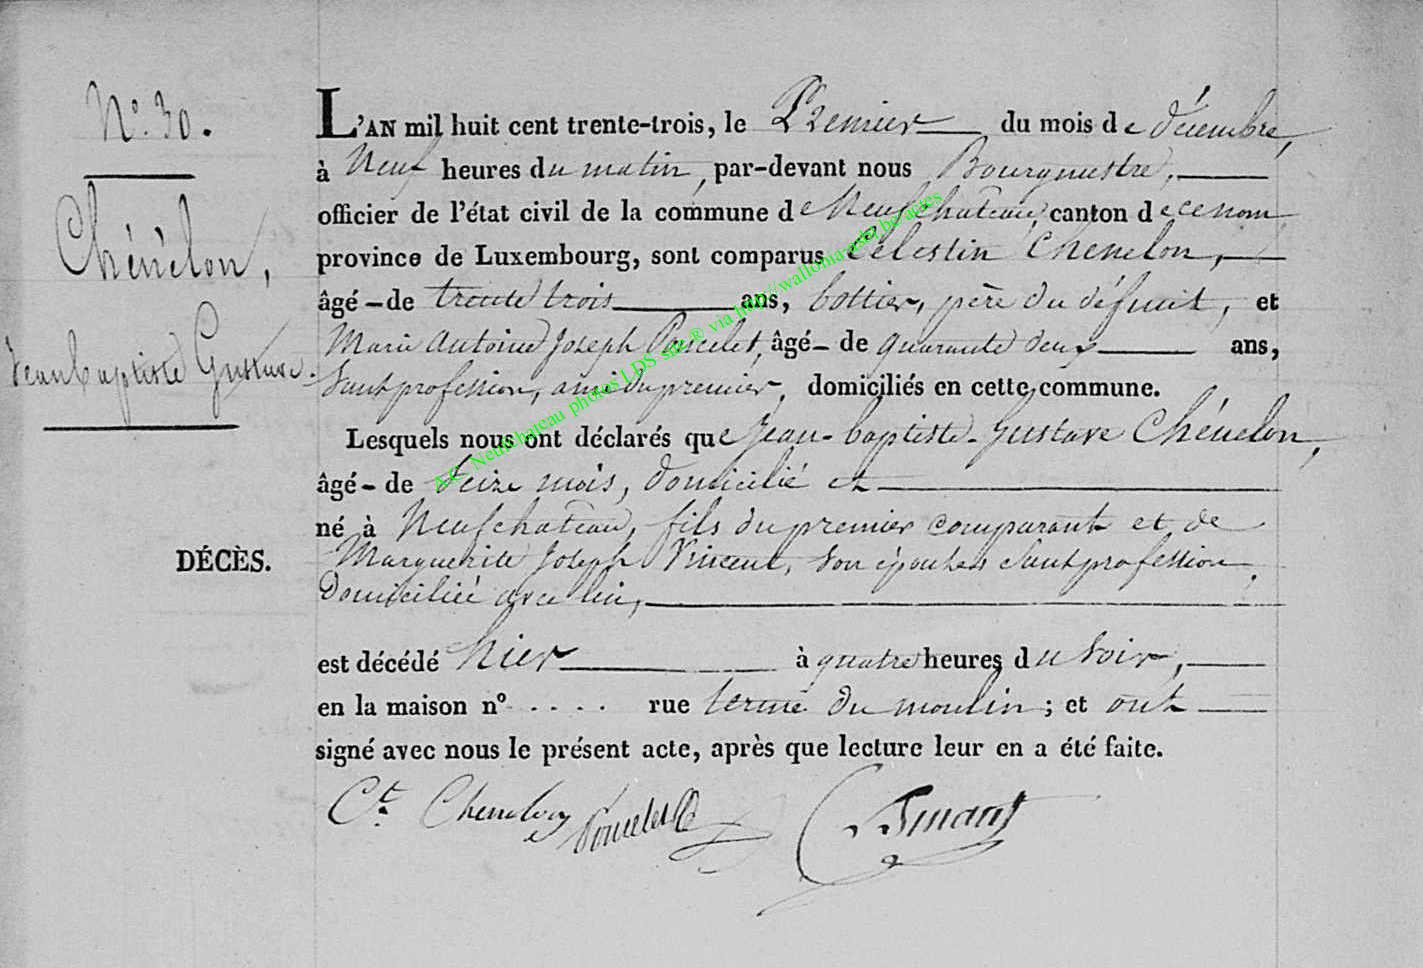 N.° 30.
Chénélon,
Jean baptiste Gustave.
DÉCÈS.
L'AN mil huit cent trente-trois, le Premier du mois de décembre,
à Neuf heures du matin, par-devant nous Bourgmestre,
officier de l'état civil de la commune de Neufchateau canton de ce nom
province de Luxembourg, sont comparus Célestin Chenelon,
âgé - de trente trois ans, bottier, père du défunt, et
Marie Antoine Joseph Poncelet, âgé - de quarante deux ans,
Sans profession, ami du premier, domiciliés en cette commune.
Lesquels nous ont déclarés que Jean-baptiste-Gustave Chénelon,
âgé - de seize mois, domicilié et
né à Neufchateau, fils du premier comparant et de
Marguerite Joseph Vincent, son épouse sans profession
Domiciliée avec lui,
est décédé hier à quatre heures du soir,
en la maison n° .... rue terme du moulin ; et ont
signé avec nous le présent acte, après que lecture leur en a été faite.
Ct. Chenelon Poncelet
A.C. Neufchateau photos LDS site ® via http://wallonia-asbl.be/actes